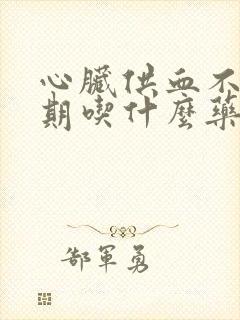 心臟供血不
期喫什麼藥
郜軍勇